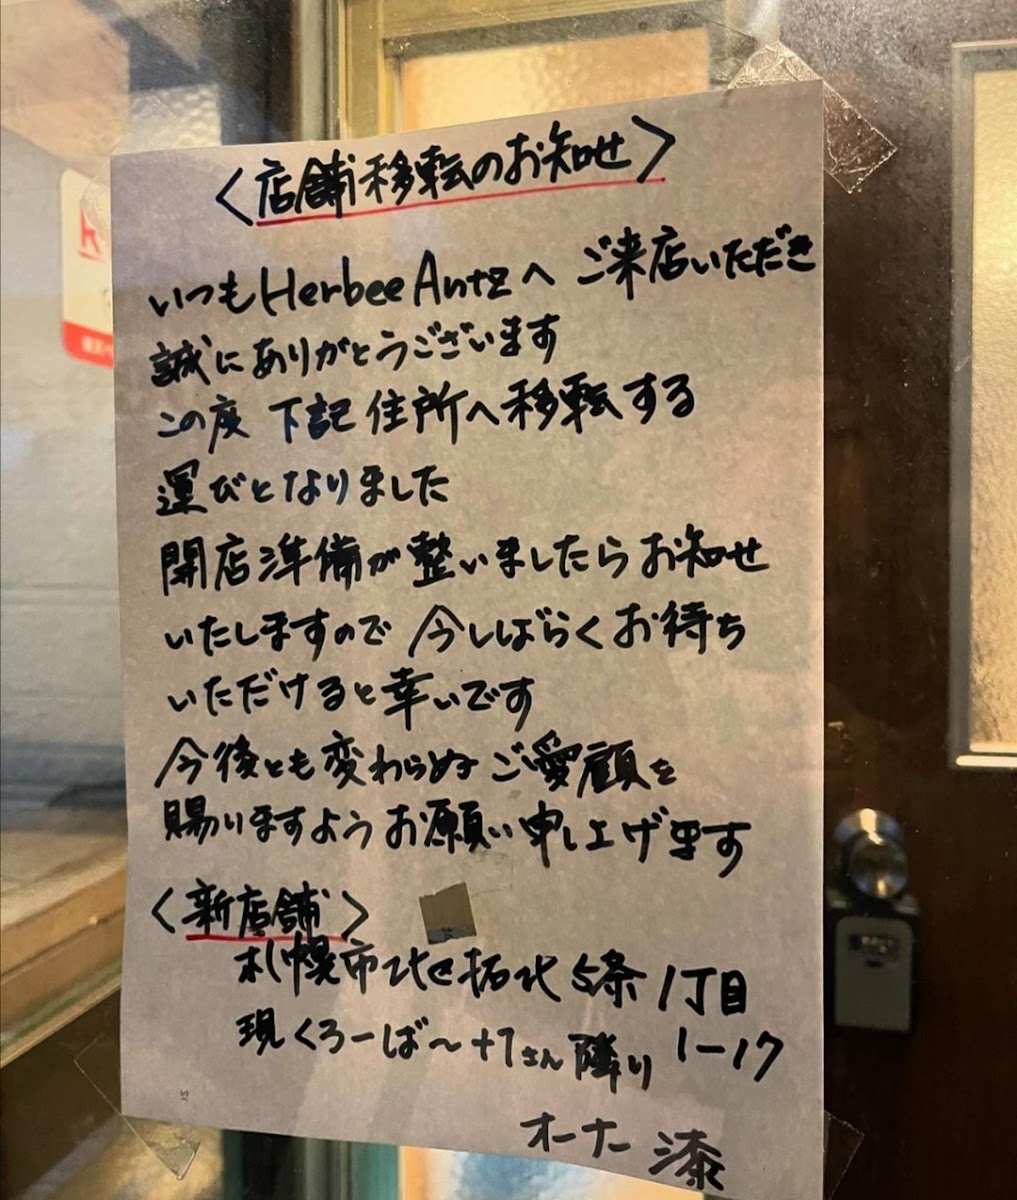 〈店舗移転のお知せ〉
いつもHerbee Antzへ ご来店いただき
誠にありがとうございます
この度 下記 住所へ移転する
運びとなりました
開店準備が整いましたらお知せ
いたしますので 今しばらくお待ち
いただけると幸いです
今後とも変わらぬ ご愛顧を
賜りますようお願い申し上げます
〈新店舗〉
札幌市北区拓北5条1丁目
現くろーばー〜+1さん隣り 1-17
オーナー 漆